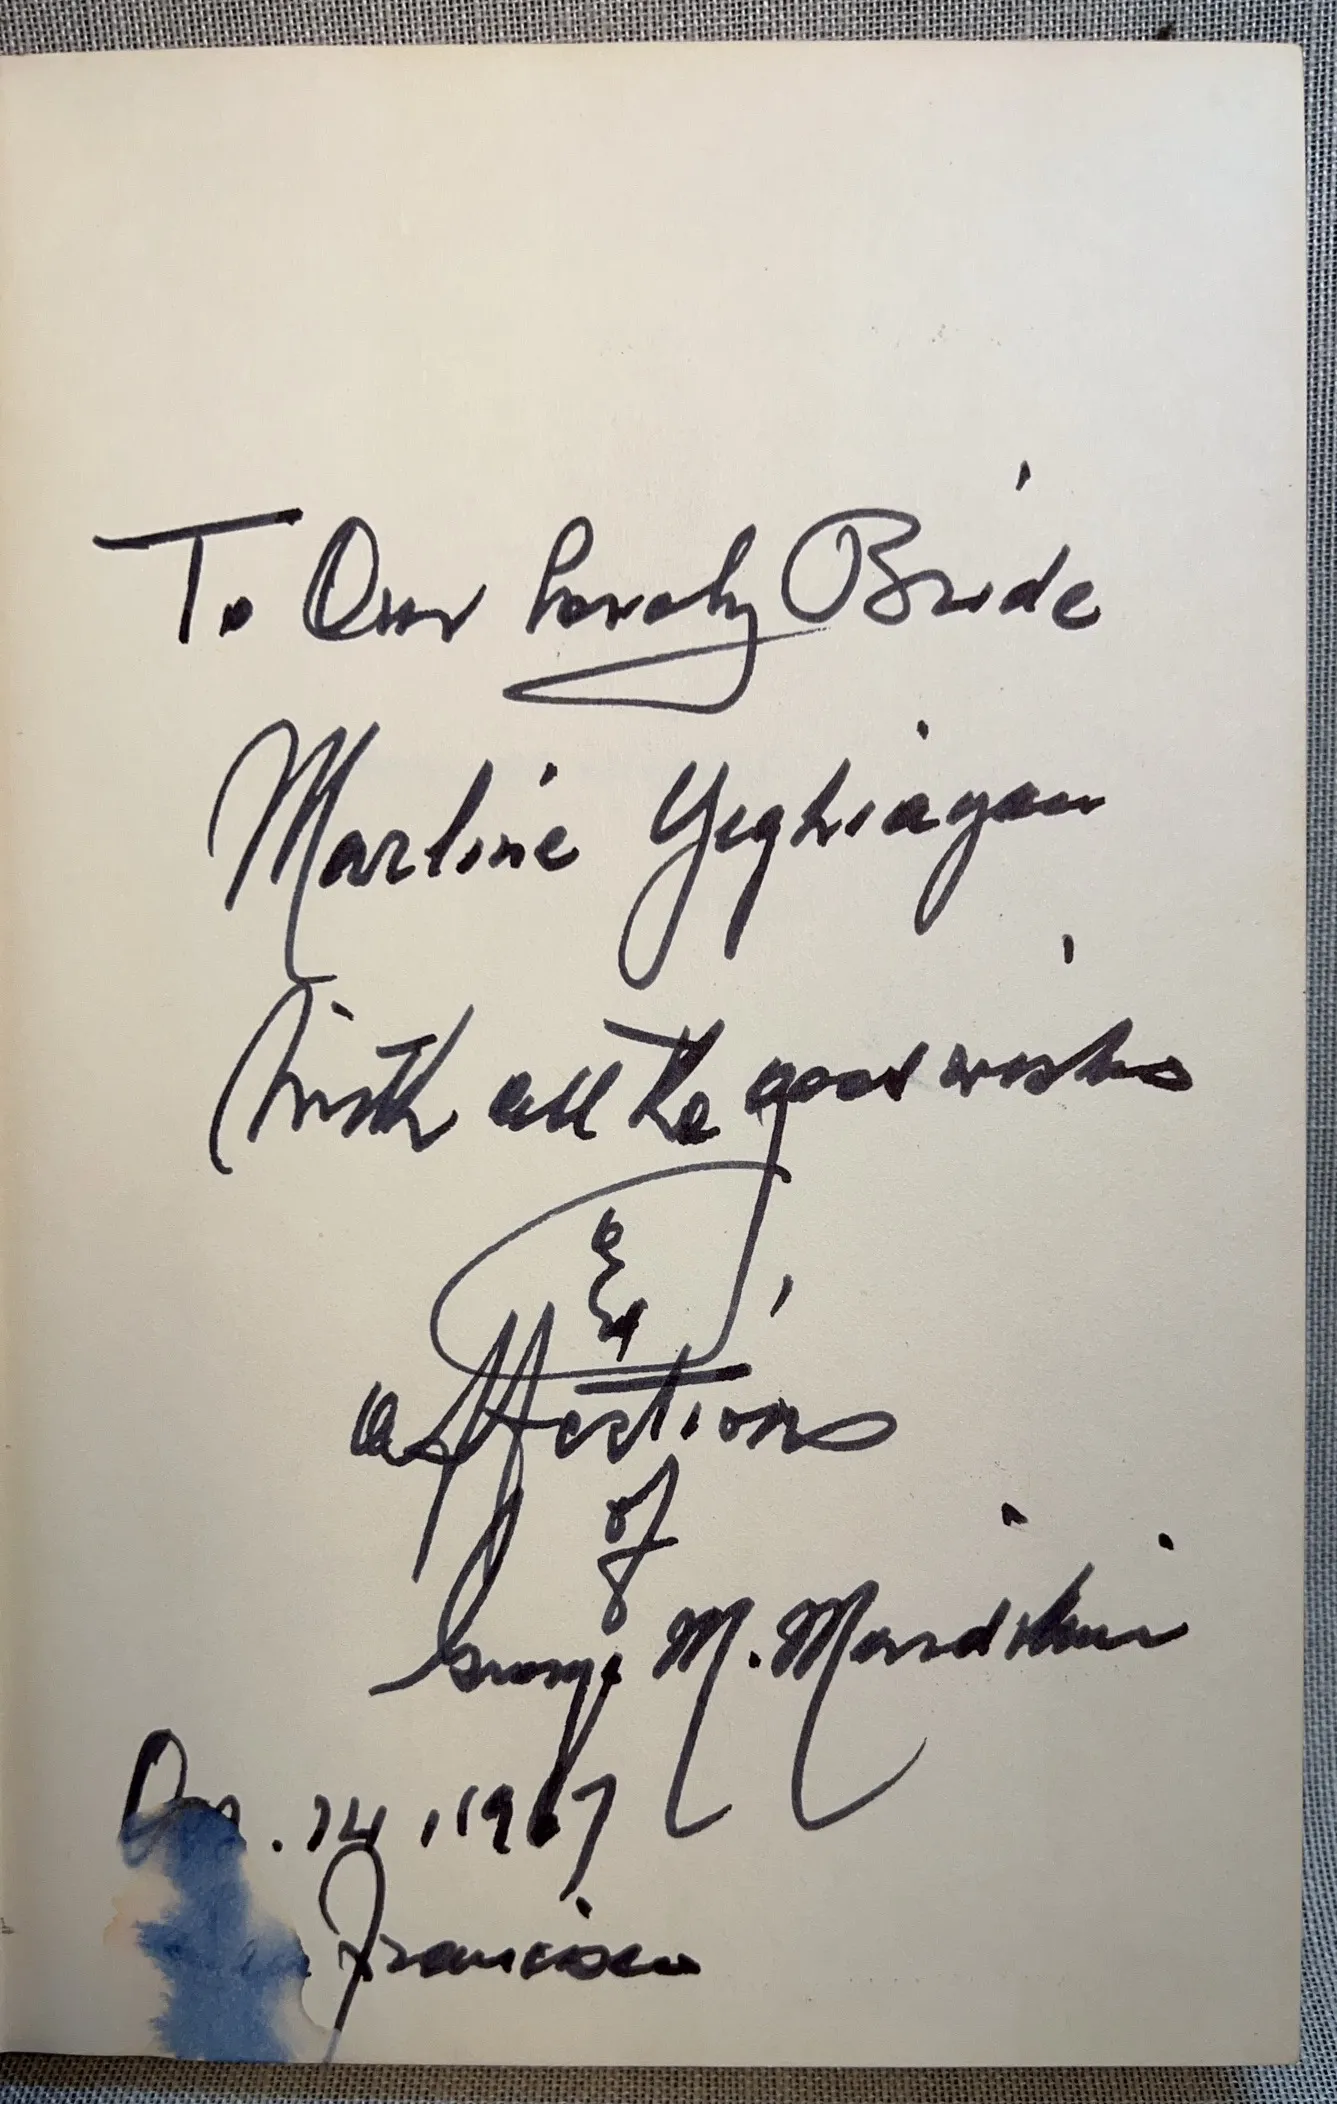 To Our Lovely Bride
Marline Yeghiayan
With all the good wishes
&
affections
of
George M. Mardikian
. 14, 1967
Francisco